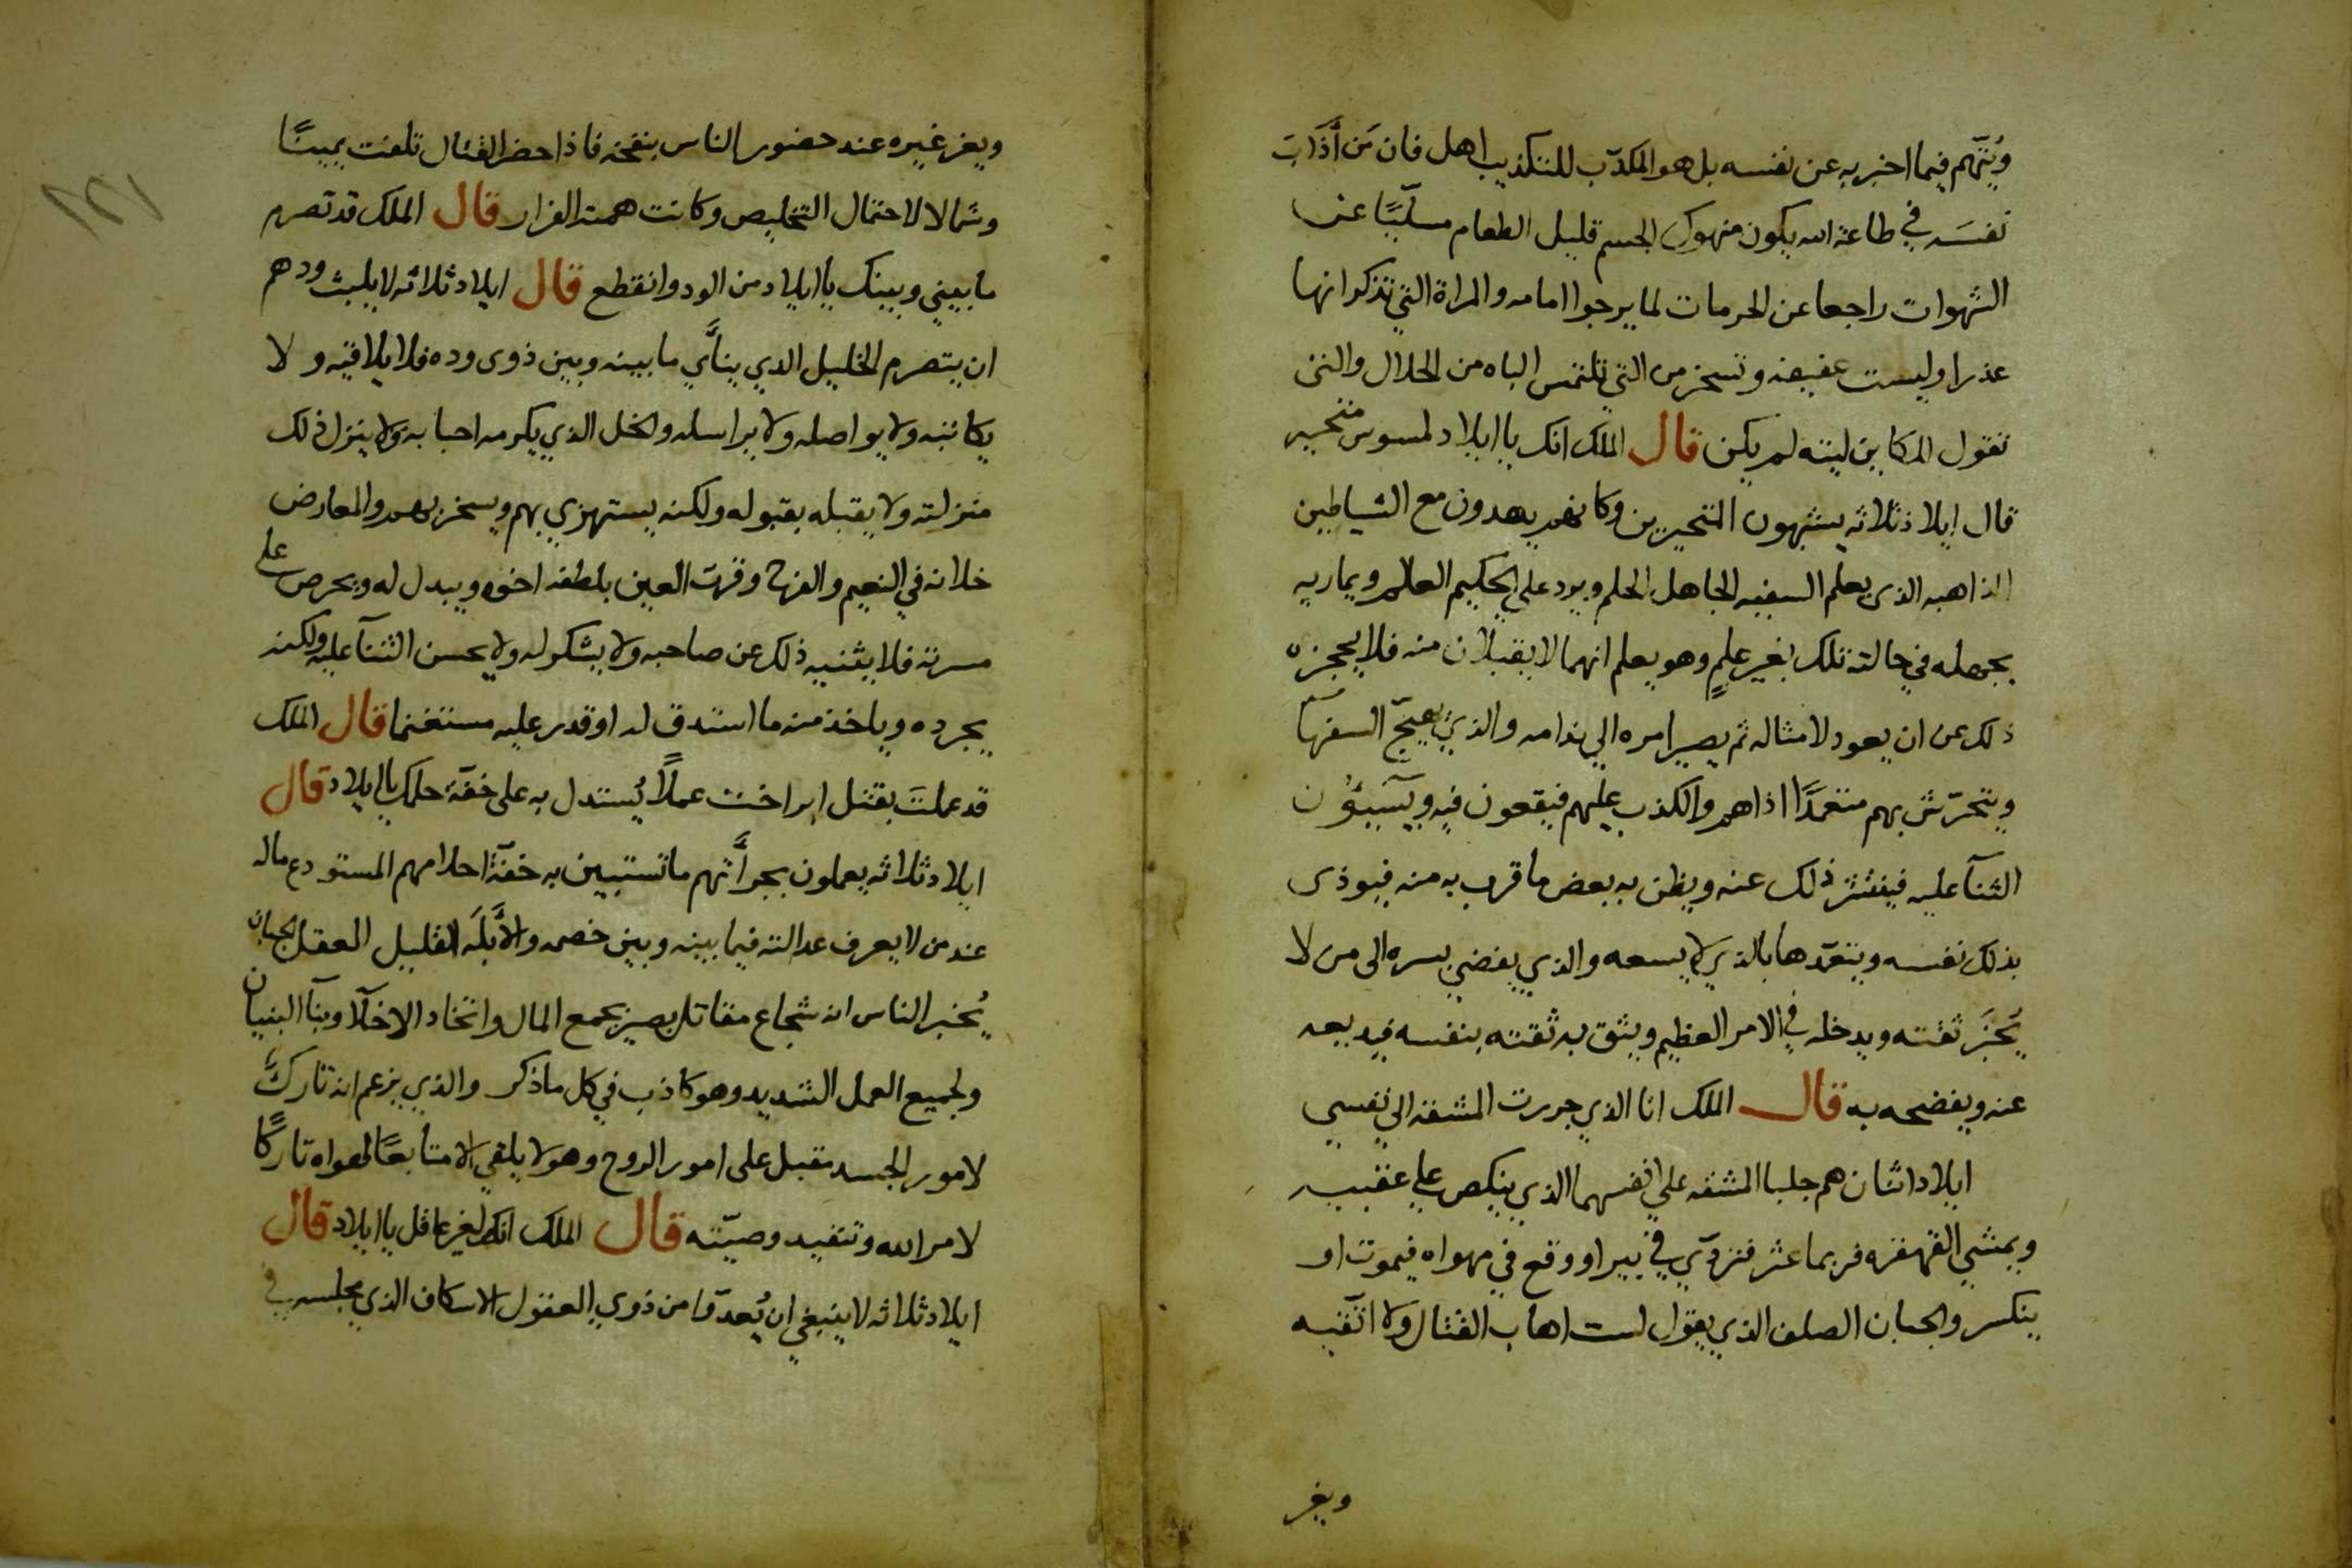 ويُتَّهم فيما اخبر به عن نفسه بل هو المكذّب للتكذيب اهل فان مَن أَذَابَ
نفسَه في طاعة الله يكون منهوك الجسم قليل الطعام مسلّيًا عن
الشهوات راجعا عن الحرمات لما يرجوا امامه والمراة التي تذكر انها
عذرا وليست عفيفه وتسخر من التي تلتمس الباه من الحلال والتي
تقول الكاين ليته لم يكن قال الملك انك يا ايلاد لمسوس متحير
قال ايلاذ ثلاثه يشبهون المتحيرين وكانهم يهدون مع الشياطين
الذاهبه الذى يعلم السفيه الجاهل الحلم ويرد على الحكيم العالم ويماريه
بجهله في حالته تلك بغير علمٍ وهو يعلم انهما لا يقبلان منه فلا يحجزه
ذلك عن ان يعود لامثاله ثم يصير امره الي ندامه والذي يهيّج السفهآ
ويتحرّش بهم متعمدًا اذاهم والكذب عليهم فيقعون فيه ويُسَيئون
الثنآ عليه فينتشر ذلك عنه ويظن به بعض ما قرب به منه فيوذى
بذلك نفسه ويتعدّها بالذي لا يسعه والذي يفضي بسره الى من لا
يُخبَر ثقته ويدخله في الامر العظيم ويثق به ثقته بنفسه فيه بعد
عنه ويفضحه به قال الملك انا الذي جررت المشقه الي نفسي
ايلاد اثنان هم جلبا المشقه علي انفسهما الذي ينكص علي عقبيه
ويمشي القهقره فربما عثر فتردّي في بير او وقع في مهواه فيموت او
ينكسر والجبان الصلف الذي يقول لست اهاب القتال ولا اتّقيه
ويغر
ويغر غيره عند حضور الناس بنفخه فاذا حضر القتال تلفت يمينًا
وشمالا لاحتمال التخليص وكانت همته الفرار قال الملك قد تصرم
ما بيني وبينك يا ايلاد من الود وانقطع قال ايلاد ثلاثه لا يلبث ودهم
ان يتصرم الخليل الذي ينأَي ما بينه وبين ذوى وده فلا يلاقيه ولا
يكاتبه ولا يواصله ولا يراسله والخل الذي يكرمه احبابه ولا ينزل ذلك
منزلته ولا يقبله بقبوله ولكنه يستهزي بهم ويسخر بهم والمعارض
خلانه في النعيم والفرح وقرت العين بلطفه اخوه ويبدل له ويحرص على
مسرته فلا يثنيه ذلك عن صاحبه ولا يشكوله ولا يحسن الثنآ عليه ولكنه
يجرده وياخذ منه ما استدق له او قدر عليه مستغنما قال الملك
قد عملتَ بقتل ايراخت عملًا يُستدل به على خفّة حلمك يا ايلاد قال
ايلاد ثلاثه يعملون بجرأَتهم ما تستبين به خفّة احلامهم المستودع ماله
عند من لا يعرف عدالته فيما بينه وبين خصمه والأَبلَه القليل العقل الجبان
يُخبر الناس انه شجاع مقاتل بصير بجمع المال واتخاد الاخلّآ وبنآ البنيان
ولجميع العمل الشديد وهو كاذب في كل ما ذكر والذي يزعم انه تاركٌ
لامور الجسد مقبل على امور الروح وهو لا يلقي الا متابعًا لهواه تاركًا
لامر الله وتنفيد وصيّته قال الملك انك لغير عاقل يا ايلاد قال
ايلاد ثلاثه لا ينبغي ان يُعدّوا من ذوي العقول الاسكاف الذي يجلس في